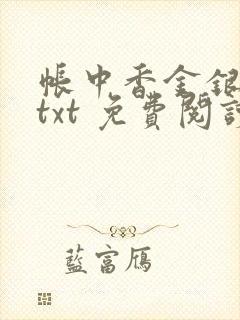 帳中香金銀
txt 免費閱讀
藍富鴈